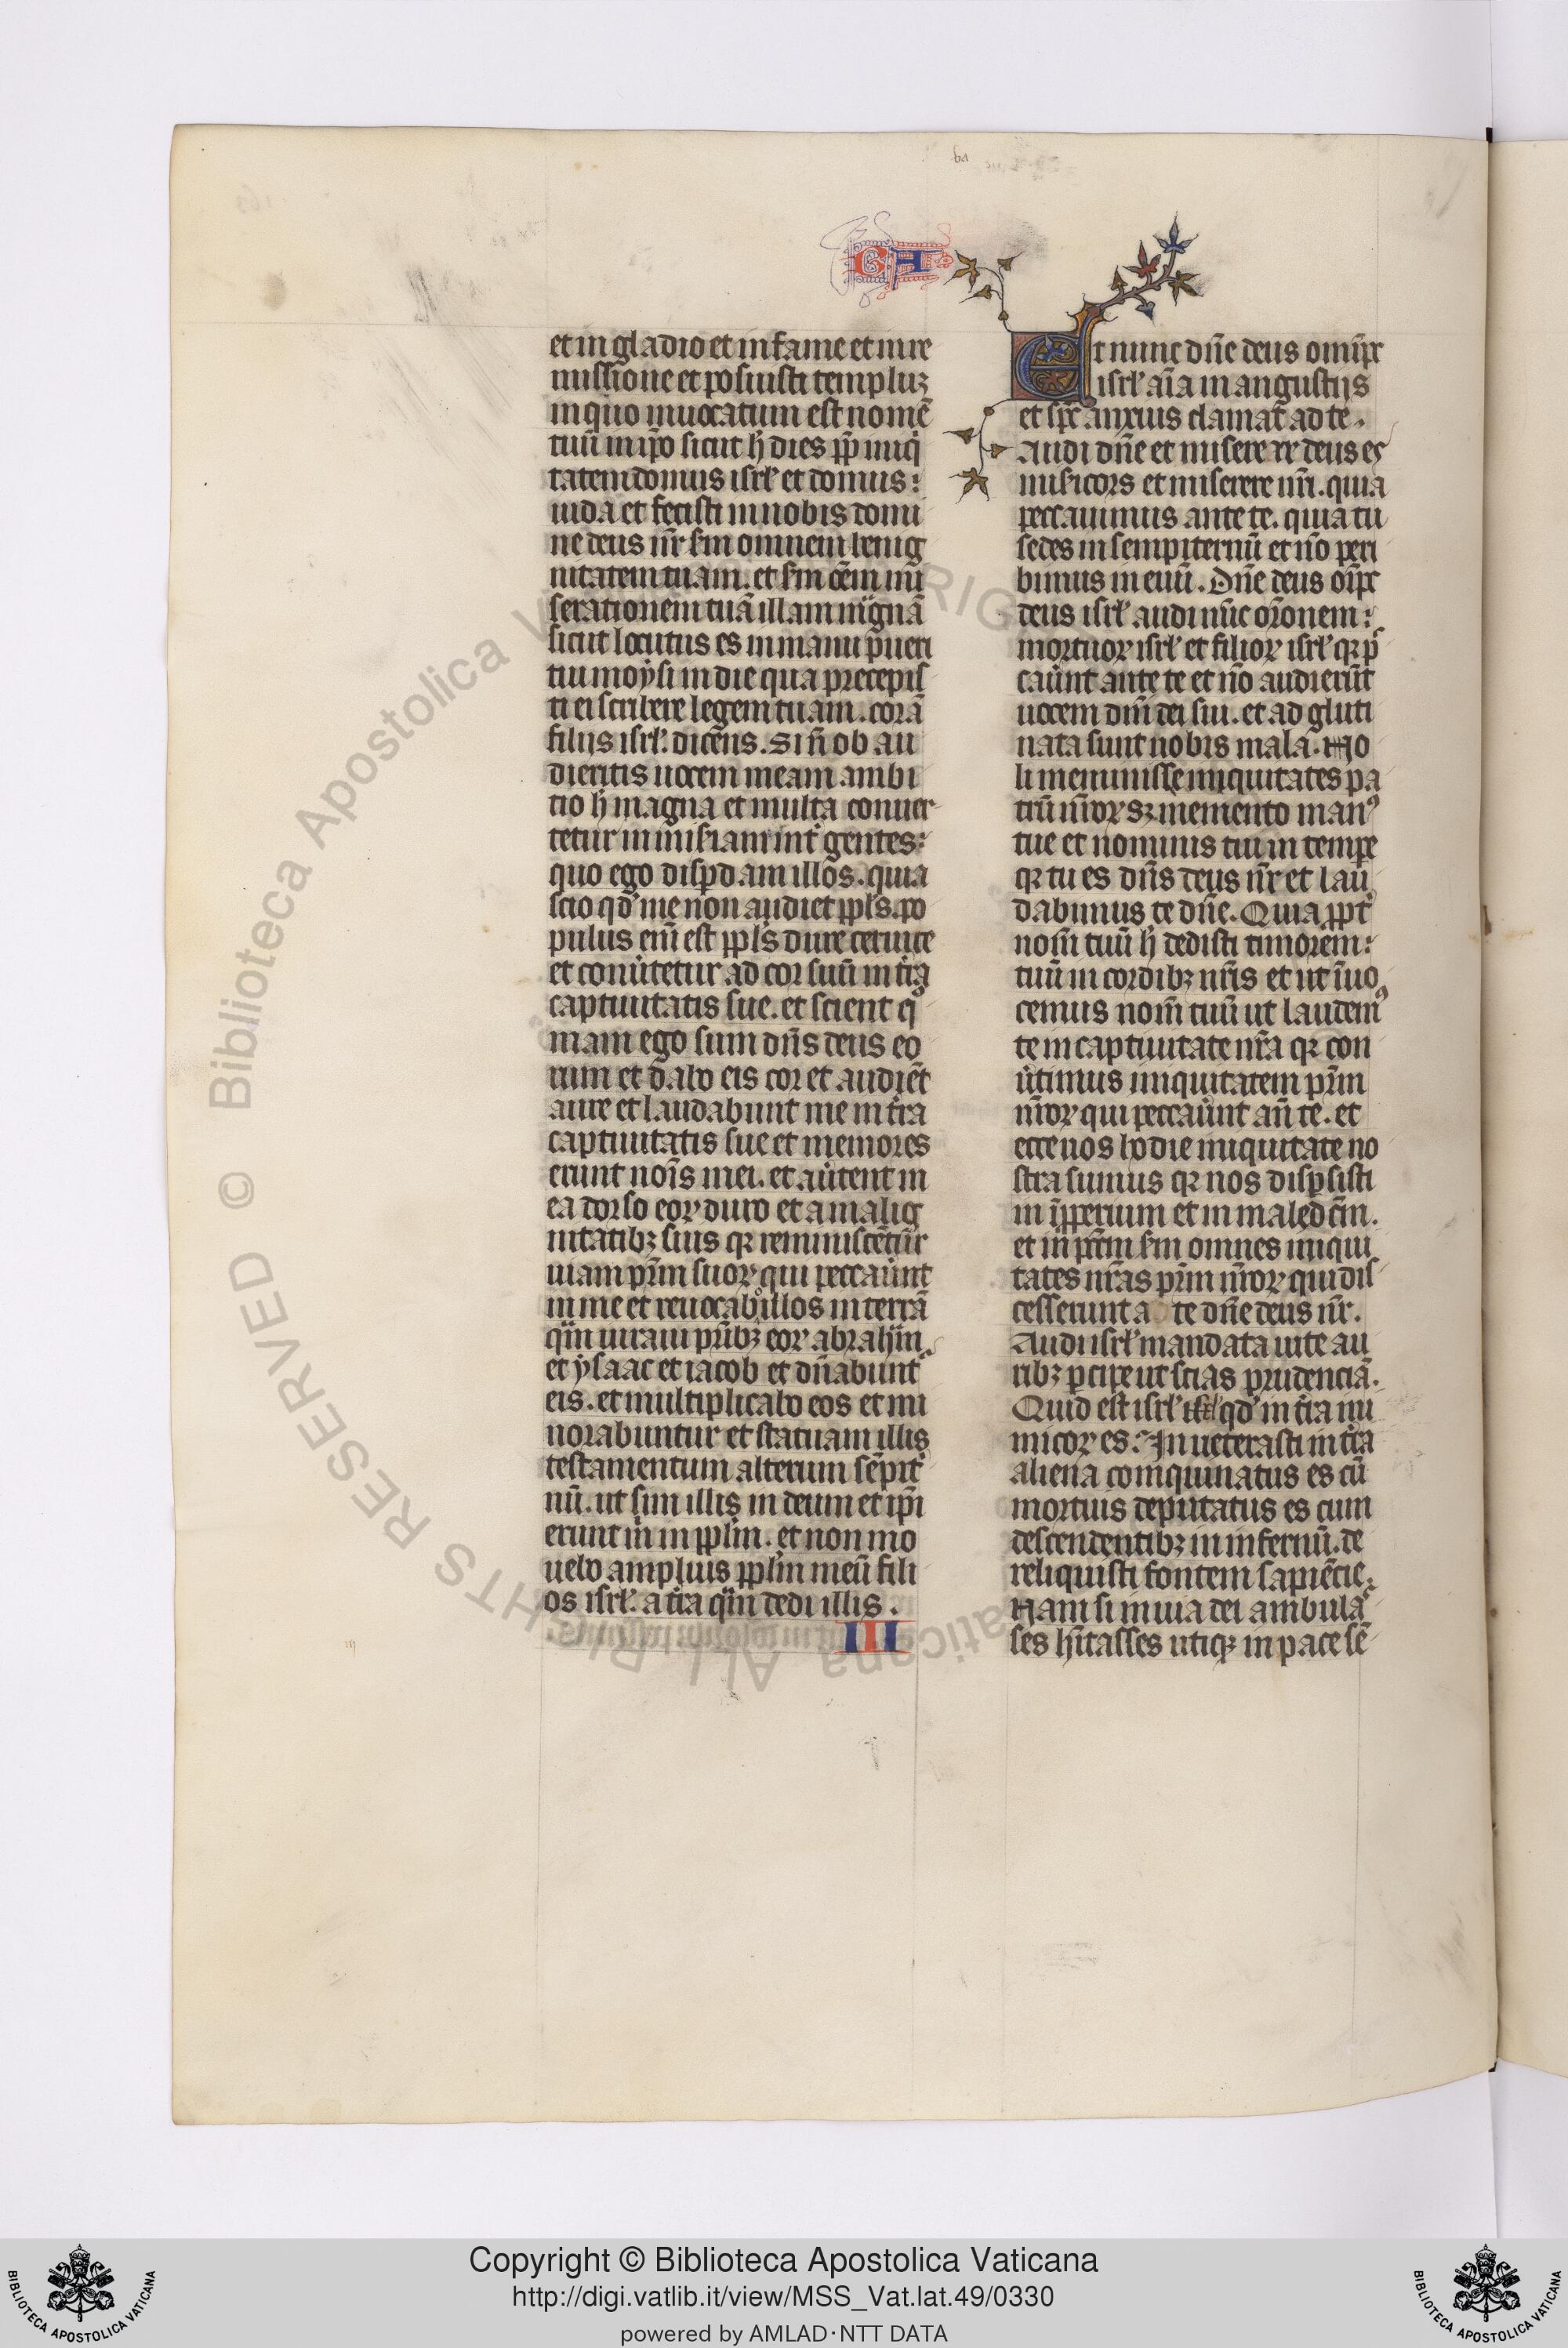 ba
CA
et in gladio et in fame et in re
missione et posuisti templuʒ
in quo inuocatum est nomē
tuū in ip̄o sicut h̄ dies ꝓp̄ iniq̇
tatem domus isrl̓ et domus:
iuda et fecisti in nobis domi
ne deus nr̄ scđm omnem benig
nitatem tuam. et scđm oēm mi
serationem tuā illam mȧgnā
sicut locutus es in manu pueri
tui moẏsi in die qua precepis
ti ei scribere legem tuam. corā
filijs isrl̓. dicens. Si ñ ob au
dieritis uocem meam. ambi
tio h̄ magna et multa conuer
tetur in minimam int̓ gentes:
quo ego disꝑdam illos. quia
scio qđ me non audiet ppl̓s. po
pulus eni̅ est ppl̓s dure ceruice
et conůtetur ad cor suū in t̓ra
captiuitatis sue. et scient q̊
niam ego sum dn̄s deus eo
rum et dabo eis cor et audiēt
aure et laudabunt me in t̓ra
captiuitatis sue et memores
erunt noīs mei. et aůtent in
ea dorso eoꝝ duro et a malig
nitatibʒ suis qꝛ reminiscēt̓ur
uiam pr̄m suoꝝ qui peccaůnt
in me et reuocab̊ illos in terrā
q̄m iuraui pr̄ibʒ eoꝝ abrahȧm
et ẏsaac et iacob et dn̄abunt̓
eis. et multiplicabo eos et mi
norabuntur et statuam illis
testamentum alterum sēpit̓
nū. ut sim illis in deum et ip̄i
erunt m̓ in ppl̓m. et non mo
uebo amplius ppl̓m meū fili
os isrl̓. a t̓ra q̄m dedi illis.
III
Et nunc dn̄e deus om̄ipr̄
isrl̓ aīa in angustijs
et sp̄c anxius clamat̄ ad te.
Audi dn̄e et miserere deus es
mis̓icors et miserere nr̄i. quia
peccauimus ante te. quia tu
sedes in sempiternū et nō peri
bimus in euū. Dn̄e deus oīpr̄
deus isrl̓ audi nūc orōnem:
mortuoꝝ isrl̓ et filioꝝ isrl̓ qꝛ p̄
caůnt ante te et nō audierūt
uocem dn̄i dei sui. et ad gluti
nata sunt nobis mala. No
li meminisse iniquitates pa
trū nr̄oꝝ sʒ memento manꝰ
tue et nominis tui in tempe
qꝛ tu es dn̄s deus nr̄ et lau
dabimus te dn̄e. Quia ꝓpt̓
nom̄ tuū h̄ dedisti timorem:
tuū in cordibʒ nr̄is et ut īuo
cemus nom̄ tuū ut laudemꝰ
te in captiuitate nr̄a qꝛ con
ůtimus iniquitatem pr̄m
nr̄oꝝ qui peccaůnt an̄ te. et
ecce nos hodie iniquitate no
stra sumus qꝛ nos disꝑsisti
in īꝓperium et in maledc̄m.
et in pcc̄m scđm omnes iniqui
tates nr̄as pr̄m nr̄oꝝ qui dis
cesserunt a te dn̄e deus nr̄.
Audi isrl̓ mandata uite au
ribʒ ꝑcipe ut scias prudenciā.
Quid est isrl̓ qđ in t̓ra ini
micoꝝ es: Inueterasti in t̓ra
aliena coinquinatus es cū
mortuis deputatus es cum
descendentibʒ in infernū. de
reliquisti fontem sapiēcie.
Nam si in uia dei ambulaſ
ses hītasses utiqꝫ in pace sē
III
© Biblioteca Apostolica Vaticana ALL RIGHTS RESERVED
Copyright © Biblioteca Apostolica Vaticana
http://digi.vatlib.it/view/MSS_Vat.lat.49/0330
powered by AMLAD·NTT DATA
BIBLIOTECA APOSTOLICA VATICANA
BIBLIOTECA APOSTOLICA VATICANA